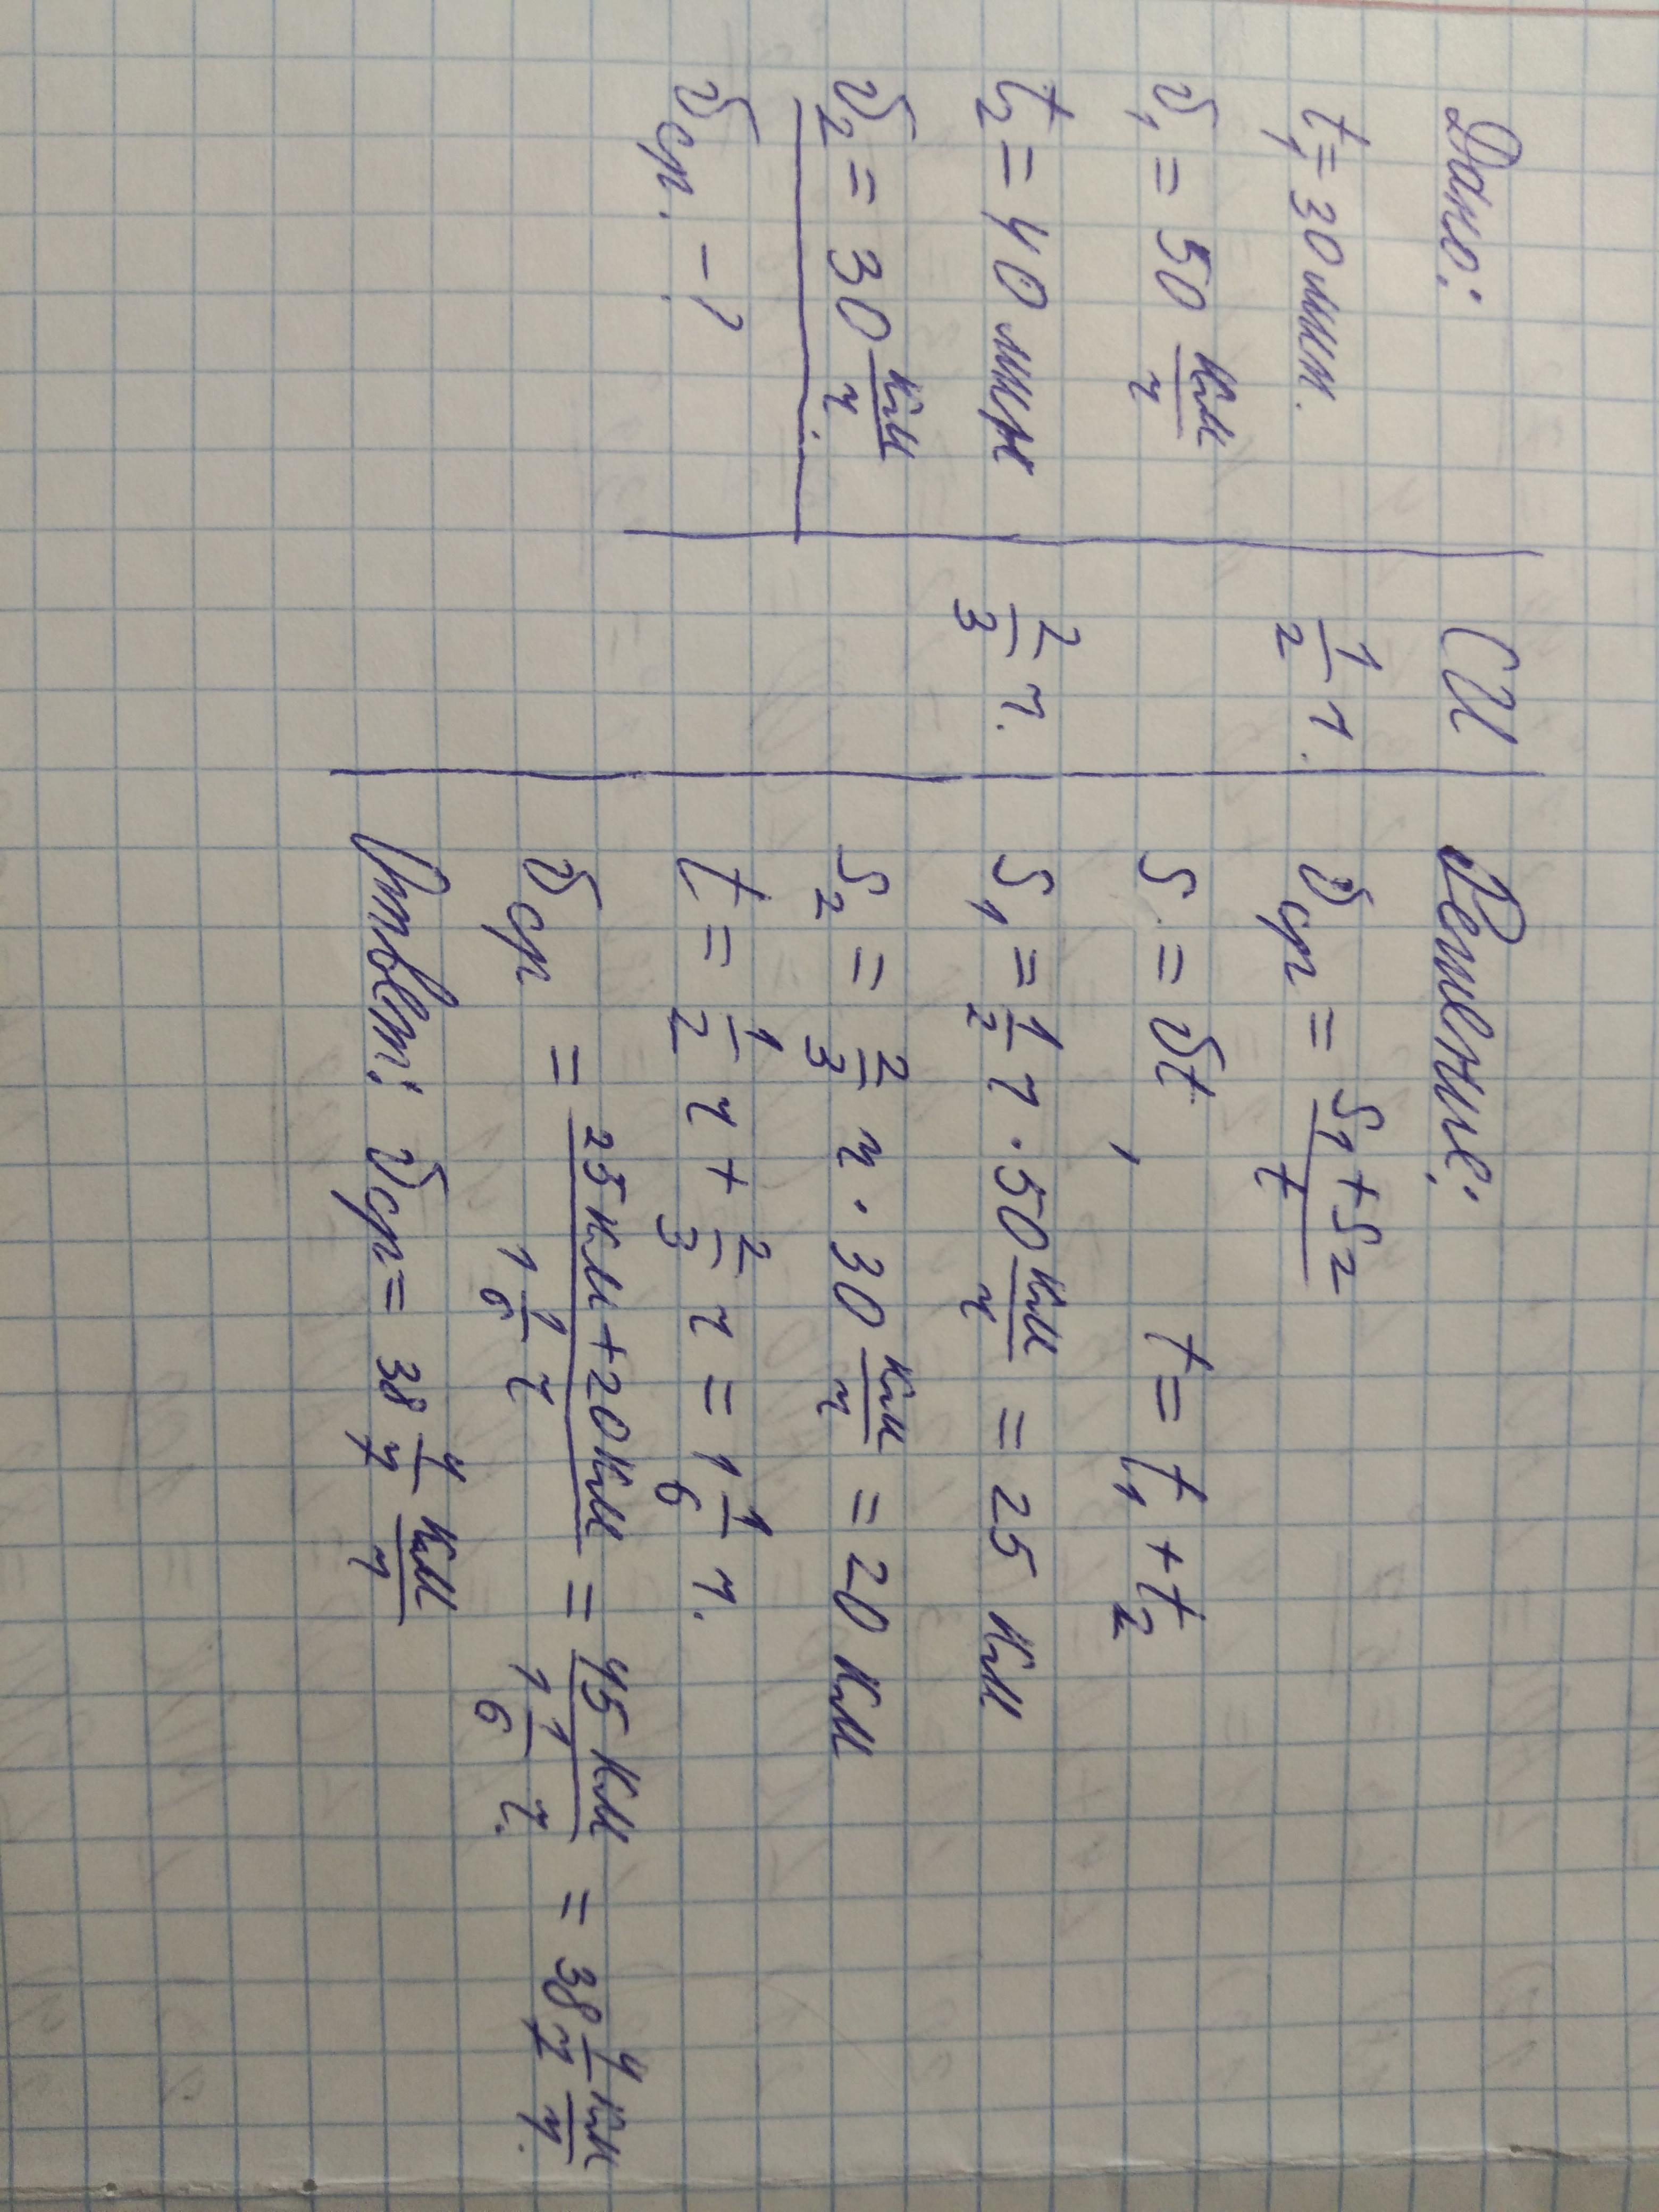 Дано:
t₁ = 30 мин.
υ₁ = 50 км/ч
t₂ = 40 мин
υ₂ = 30 км/ч
υср. - ?
СИ
1/2 ч.
2/3 ч.
Решение:
υср = (S₁ + S₂)/t
S = υt, t = t₁ + t₂
S₁ = 1/2 ч · 50 км/ч = 25 км
S₂ = 2/3 ч · 30 км/ч = 20 км
t = 1/2 ч + 2/3 ч = 1 1/6 ч.
υср = (25 км + 20 км)/(1 1/6 ч) = 45 км/(1 1/6 ч.) = 38 4/7 км/ч.
Ответ: υср = 38 4/7 км/ч